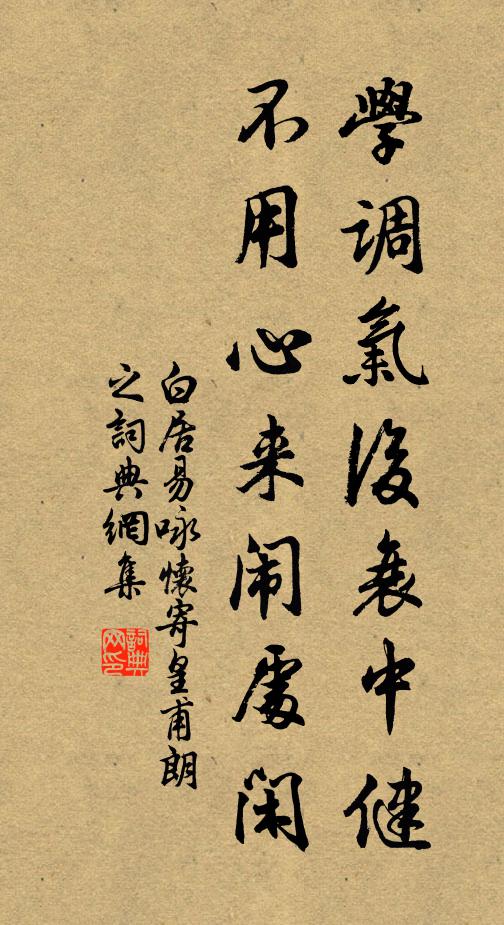 學調氣後衰中健
不用心来闹處閑
白居易咏懷寄皇甫朗
之詞典網集
詞典
网印